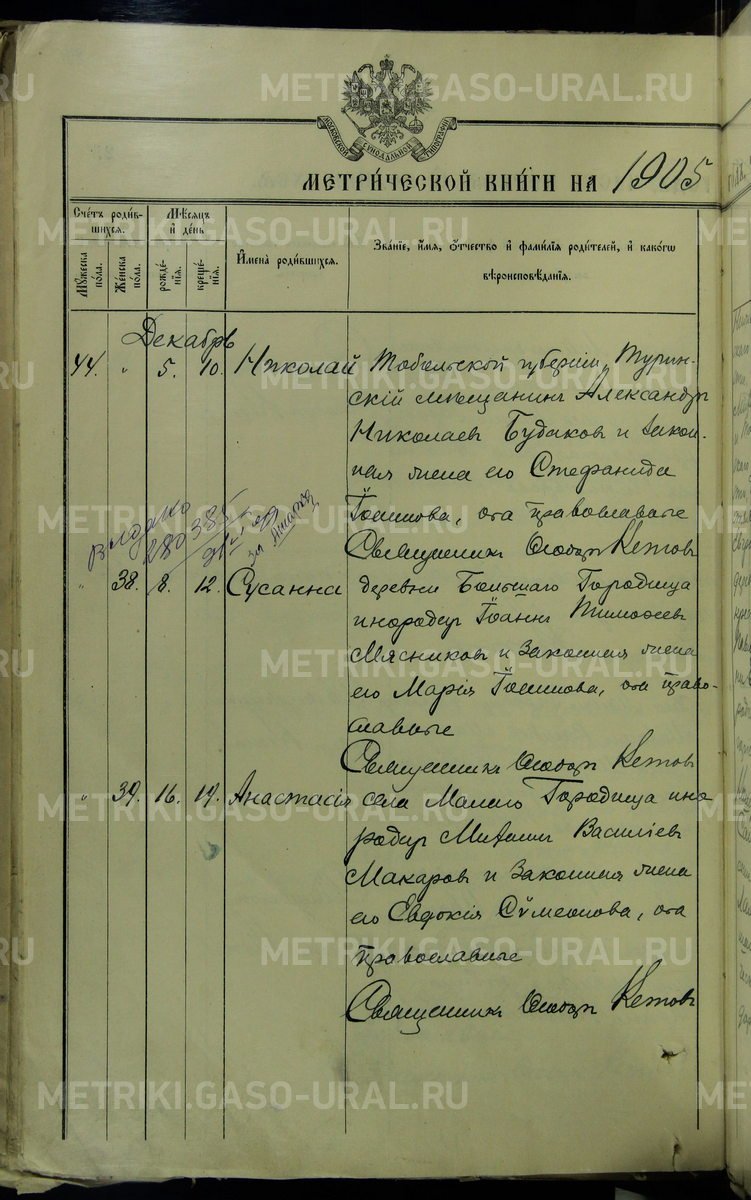 METRIKI.GASO-URAL.RU
МОСКОВСКОЙ СѴНОДАЛЬНОЙ ТИПОГРАФІИ
МЕТРИ́ЧЕСКОЙ КНИ́ГИ НА 1905
Сче́тъ роди́вшихся.
Мѣ́сяцъ и҆ де́нь
И҆мена̀ роди́вшихся.
Зва́нїе, и҆́мѧ, ѻ҆́тчество и҆ фами́лїѧ роди́телей, и҆ како́гѡ вѣроисповѣ́данїѧ.
Мꙋ́жеска по́ла.
Же́нска по́ла.
рожде́нїѧ.
креще́нїѧ.
Декабрь
44. " 5. 10. Николай Тобольской губерніи, Турин-
скій мѣщанинъ Александръ
Николаевъ Будаковъ и закон-
ная жена его Стефанида
Іоаннова, оба православные
Священникъ Ѳеодоръ Кетовъ
Выдано
280 385
" 38. 8. 12. Сусанна деревни Большаго Городища
инородецъ Іоаннъ Тимоѳеевъ
Мясниковъ и законная жена
его Марія Іоаннова, оба право-
славные
Священникъ Ѳеодоръ Кетовъ
" 39. 16. 17. Анастасія села Малаго Городища ино
родецъ Михаилъ Василіевъ
Макаровъ и законная жена
его Евдокія Сѵмеонова, оба
православные
Священникъ Ѳеодоръ Кетовъ